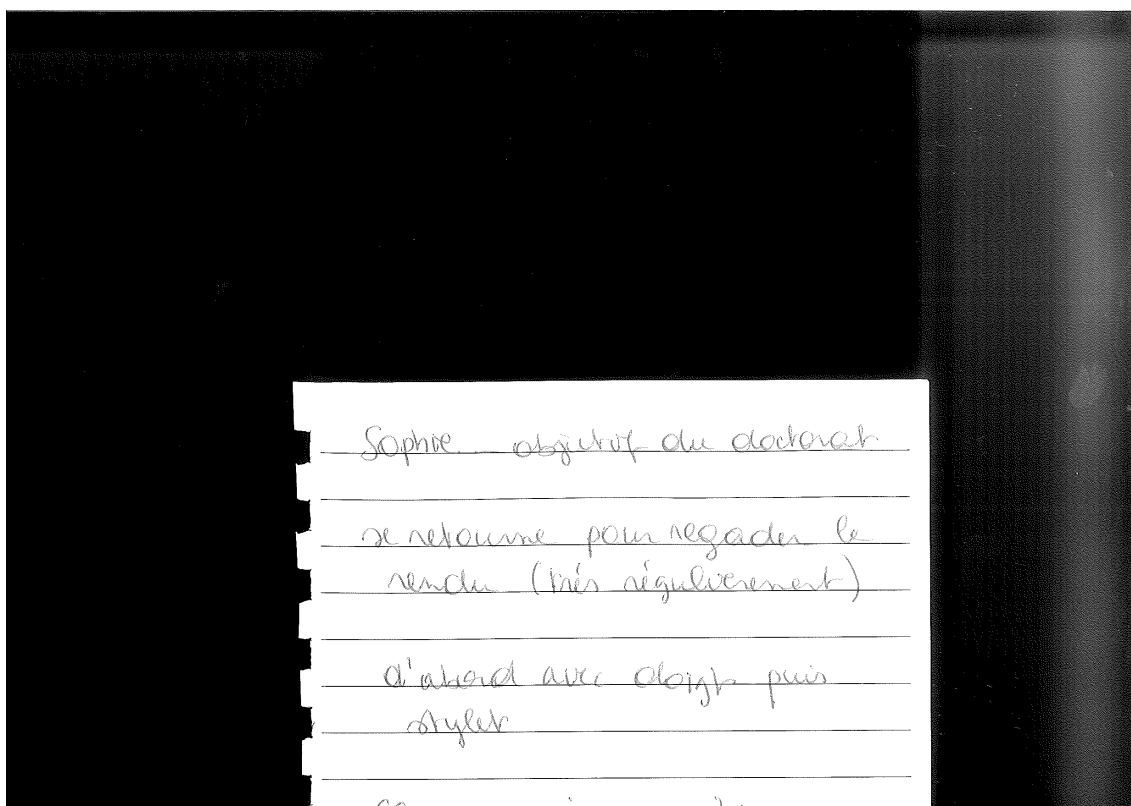 Sophie objectif du doctorat
se retourne pour regader le
rendu (très régulièrement)
d'abord avec doigt puis
stylet